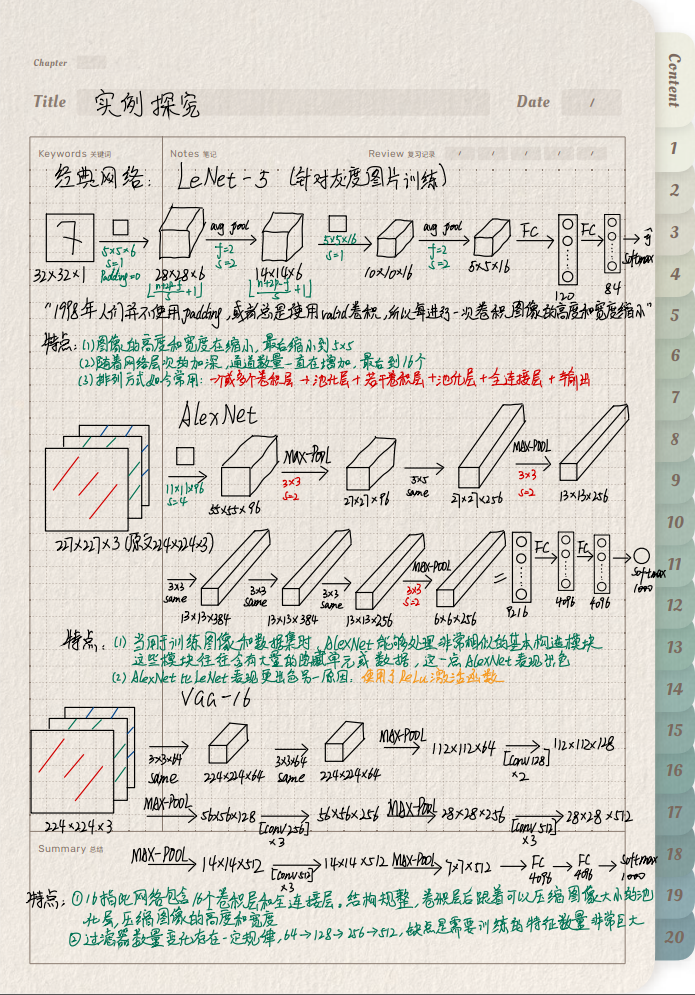 Chapter
Title 实例探究 Date /
Content
Keywords 关键词 Notes 笔记 Review 复习记录 / / / / /
经典网络: LeNet-5 (针对灰度图片训练)
7
32×32×1
5×5×6
s=1
Padding=0
28×28×6
⌊(n+2p-f)/s +1⌋
avg pool
f=2
s=2
14×14×6
⌊(n+2p-f)/s +1⌋
5×5×16
s=1
10×10×16
avg pool
f=2
s=2
5×5×16
FC
120
FC
84
ŷ
softmax
"1998年人们并不使用padding, 或者总是使用valid卷积,所以每进行一次卷积图像的高度和宽度缩小"
特点: (1)图像的高度和宽度在缩小, 最后缩小到5×5
(2)随着网络层次的加深, 通道数量一直在增加, 最后到16个
(3)排列方式如今常用: 一个或多个卷积层 → 池化层 + 若干卷积层 + 池化层 + 全连接层 + 输出
AlexNet
227×227×3 (原文224×224×3)
11×11×96
s=4
55×55×96
MAX-POOL
3×3
s=2
27×27×96
5×5
same
27×27×256
MAX-POOL
3×3
s=2
13×13×256
3×3
same
13×13×384
3×3
same
13×13×384
3×3
same
13×13×256
MAX-POOL
3×3
s=2
6×6×256
=
9216
FC
4096
FC
4096
softmax
1000
特点: (1) 当用于训练图像和数据集时, AlexNet能够处理非常相似的基本构造模块
这些模块往往含有大量的隐藏单元或数据, 这一点AlexNet表现出色
(2) AlexNet比LeNet表现更出色另一原因: 使用了ReLu激活函数
VGG-16
224×224×3
3×3×64
same
224×224×64
3×3×64
same
224×224×64
MAX-POOL
112×112×64
[conv 128]
×2
112×112×128
MAX-POOL
56×56×128
[conv 256]
×3
56×56×256
MAX-POOL
28×28×256
[conv 512]
×3
28×28×512
Summary 总结
MAX-POOL
14×14×512
[conv 512]
×3
14×14×512
MAX-POOL
7×7×512
FC
4096
FC
4096
softmax
1000
特点: ①16指此网络包含16个卷积层和全连接层。结构规整, 卷积层后跟着可以压缩图像大小的池
化层, 压缩图像的高度和宽度
②过滤器数量变化存在一定规律, 64→128→256→512, 缺点是需要训练的特征数量非常巨大
1
2
3
4
5
6
7
8
9
10
11
12
13
14
15
16
17
18
19
20